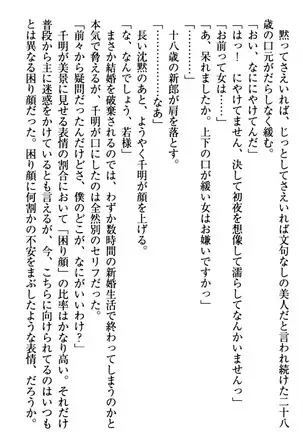 黙ってさえいれば、じっとしてさえいれば文句なしの美人だと言われ続けた二十八
歳の口元がだらしなく緩む。
「おい、なににやけてんだ」
「はっ！　にやけてません、決して初夜を想像して濡らしてなんかいませんっ」
「お前って女は……」
「あ、呆れましたか。上下の口が緩い女はお嫌いですかっ」
十八歳の新郎が肩を落とす。
「…………なあ」
長い沈黙のあと、ようやく千明が顔を上げる。
「な、なんでしょう、若様」
まさか結婚を破棄されるのでは、わずか数時間の新婚生活で終わってしまうのかと
本気で脅えるが、千明が口にしたのは全然別のセリフだった。
「前々から疑問だったんだけどさ、僕のどこが、なにがいいわけ？」
千明が美景に見せる表情の割合において「困り顔」の比率はかなり高い。それだけ
普段から主に迷惑をかけているとも言えるが、今、こちらに向けられてるのはいつも
とは異なる困り顔だ。困り顔に何割かの不安をまぶしたような表情、だろうか。